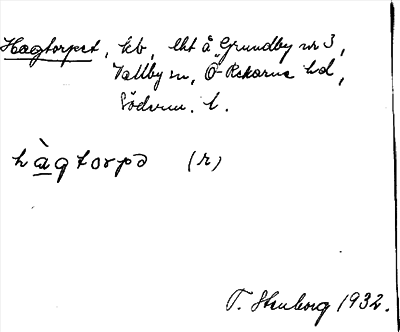 Hagtorpet, kb, lht å Grundby nr 3,
Vallby sn, Ö-Rekarne hd,
Södrm. l.
hàgtorpə (r)
T. Stenborg 1932.